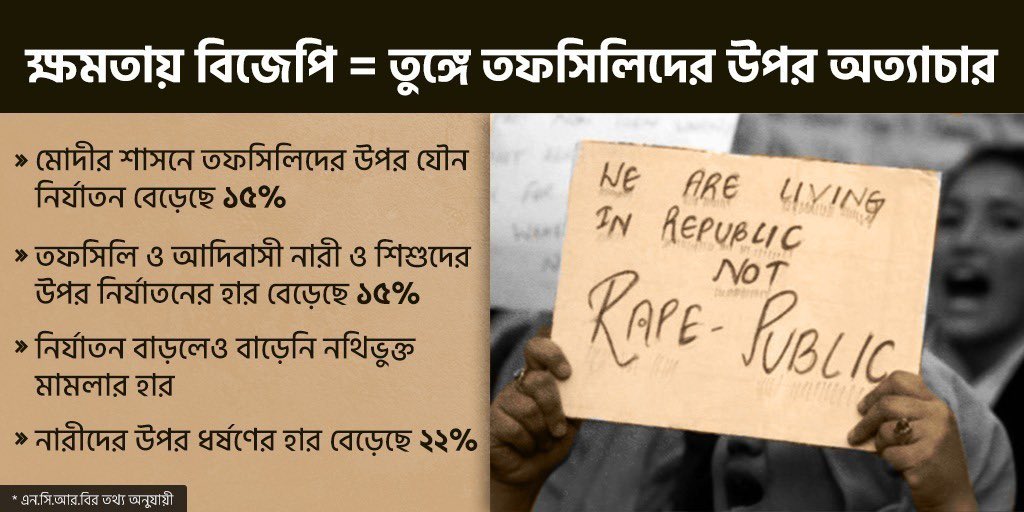 ক্ষমতায় বিজেপি = তুঙ্গে তফসিলিদের উপর অত্যাচার
» মোদীর শাসনে তফসিলিদের উপর যৌন
নির্যাতন বেড়েছে ১৫%
» তফসিলি ও আদিবাসী নারী ও শিশুদের
উপর নির্যাতনের হার বেড়েছে ১৫%
» নির্যাতন বাড়লেও বাড়েনি নথিভুক্ত
মামলার হার
» নারীদের উপর ধর্ষণের হার বেড়েছে ২২%
* এন.সি.আর.বির তথ্য অনুযায়ী
WE ARE LIVING
IN REPUBLIC
NOT
RAPE-PUBLIC